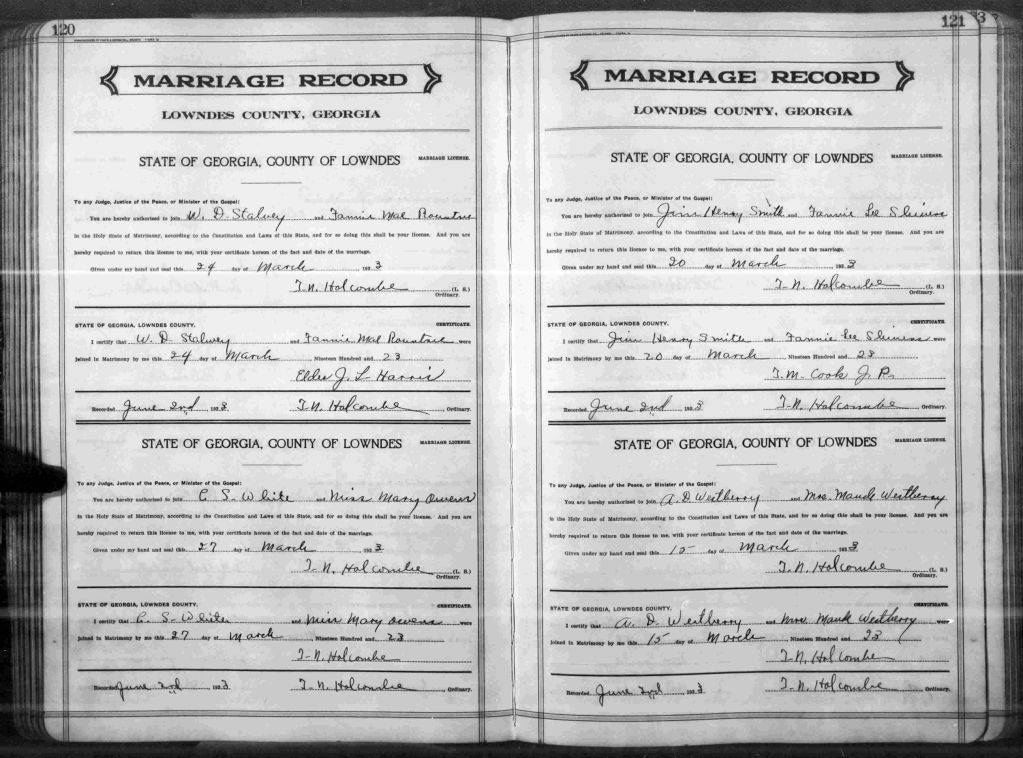 120
MARRIAGE RECORD
LOWNDES COUNTY, GEORGIA
STATE OF GEORGIA, COUNTY OF LOWNDES MARRIAGE LICENSE.
To any Judge, Justice of the Peace, or Minister of the Gospel:
You are hereby authorized to join W. D. Stalvey and Fannie Mae Rountree
in the Holy State of Matrimony, according to the Constitution and Laws of this State, and for so doing this shall be your license. And you are
hereby required to return this license to me, with your certificate hereon of the fact and date of the marriage.
Given under my hand and seal this 24 day of March 1923
T. N. Holcombe (L. S.)
Ordinary.
STATE OF GEORGIA, LOWNDES COUNTY. CERTIFICATE.
I certify that W. D. Stalvey and Fannie Mae Rountree were
joined in Matrimony by me this 24 day of March Nineteen Hundred and 23
Elder J. L. Harris
Recorded June 2nd 1923 T. N. Holcombe Ordinary.
STATE OF GEORGIA, COUNTY OF LOWNDES MARRIAGE LICENSE.
To any Judge, Justice of the Peace, or Minister of the Gospel:
You are hereby authorized to join C. S. White and Miss Mary Owens
in the Holy State of Matrimony, according to the Constitution and Laws of this State, and for so doing this shall be your license. And you are
hereby required to return this license to me, with your certificate hereon of the fact and date of the marriage.
Given under my hand and seal this 27 day of March 1923
T. N. Holcombe (L. S.)
Ordinary.
STATE OF GEORGIA, LOWNDES COUNTY. CERTIFICATE.
I certify that C. S. White and Miss Mary Owens were
joined in Matrimony by me this 27 day of March Nineteen Hundred and 23
T. N. Holcombe
Recorded June 2nd 1923 T. N. Holcombe Ordinary.
121
3
MARRIAGE RECORD
LOWNDES COUNTY, GEORGIA
STATE OF GEORGIA, COUNTY OF LOWNDES MARRIAGE LICENSE.
To any Judge, Justice of the Peace, or Minister of the Gospel:
You are hereby authorized to join Jim Henry Smith and Fannie Lee
in the Holy State of Matrimony, according to the Constitution and Laws of this State, and for so doing this shall be your license. And you are
hereby required to return this license to me, with your certificate hereon of the fact and date of the marriage.
Given under my hand and seal this 20 day of March 1923
T. N. Holcombe (L. S.)
Ordinary.
STATE OF GEORGIA, LOWNDES COUNTY. CERTIFICATE.
I certify that Jim Henry Smith and Fannie Lee were
joined in Matrimony by me this 20 day of March Nineteen Hundred and 23
T. M. Cook J. P.
Recorded June 2nd 1923 T. N. Holcombe Ordinary.
STATE OF GEORGIA, COUNTY OF LOWNDES MARRIAGE LICENSE.
To any Judge, Justice of the Peace, or Minister of the Gospel:
You are hereby authorized to join A. D. Westberry and Mrs. Maude Westberry
in the Holy State of Matrimony, according to the Constitution and Laws of this State, and for so doing this shall be your license. And you are
hereby required to return this license to me, with your certificate hereon of the fact and date of the marriage.
Given under my hand and seal this 15 day of March 1923
T. N. Holcombe (L. S.)
Ordinary.
STATE OF GEORGIA, LOWNDES COUNTY. CERTIFICATE.
I certify that A. D. Westberry and Mrs. Maude Westberry were
joined in Matrimony by me this 15 day of March Nineteen Hundred and 23
T. N. Holcombe
Recorded June 2nd 1923 T. N. Holcombe Ordinary.